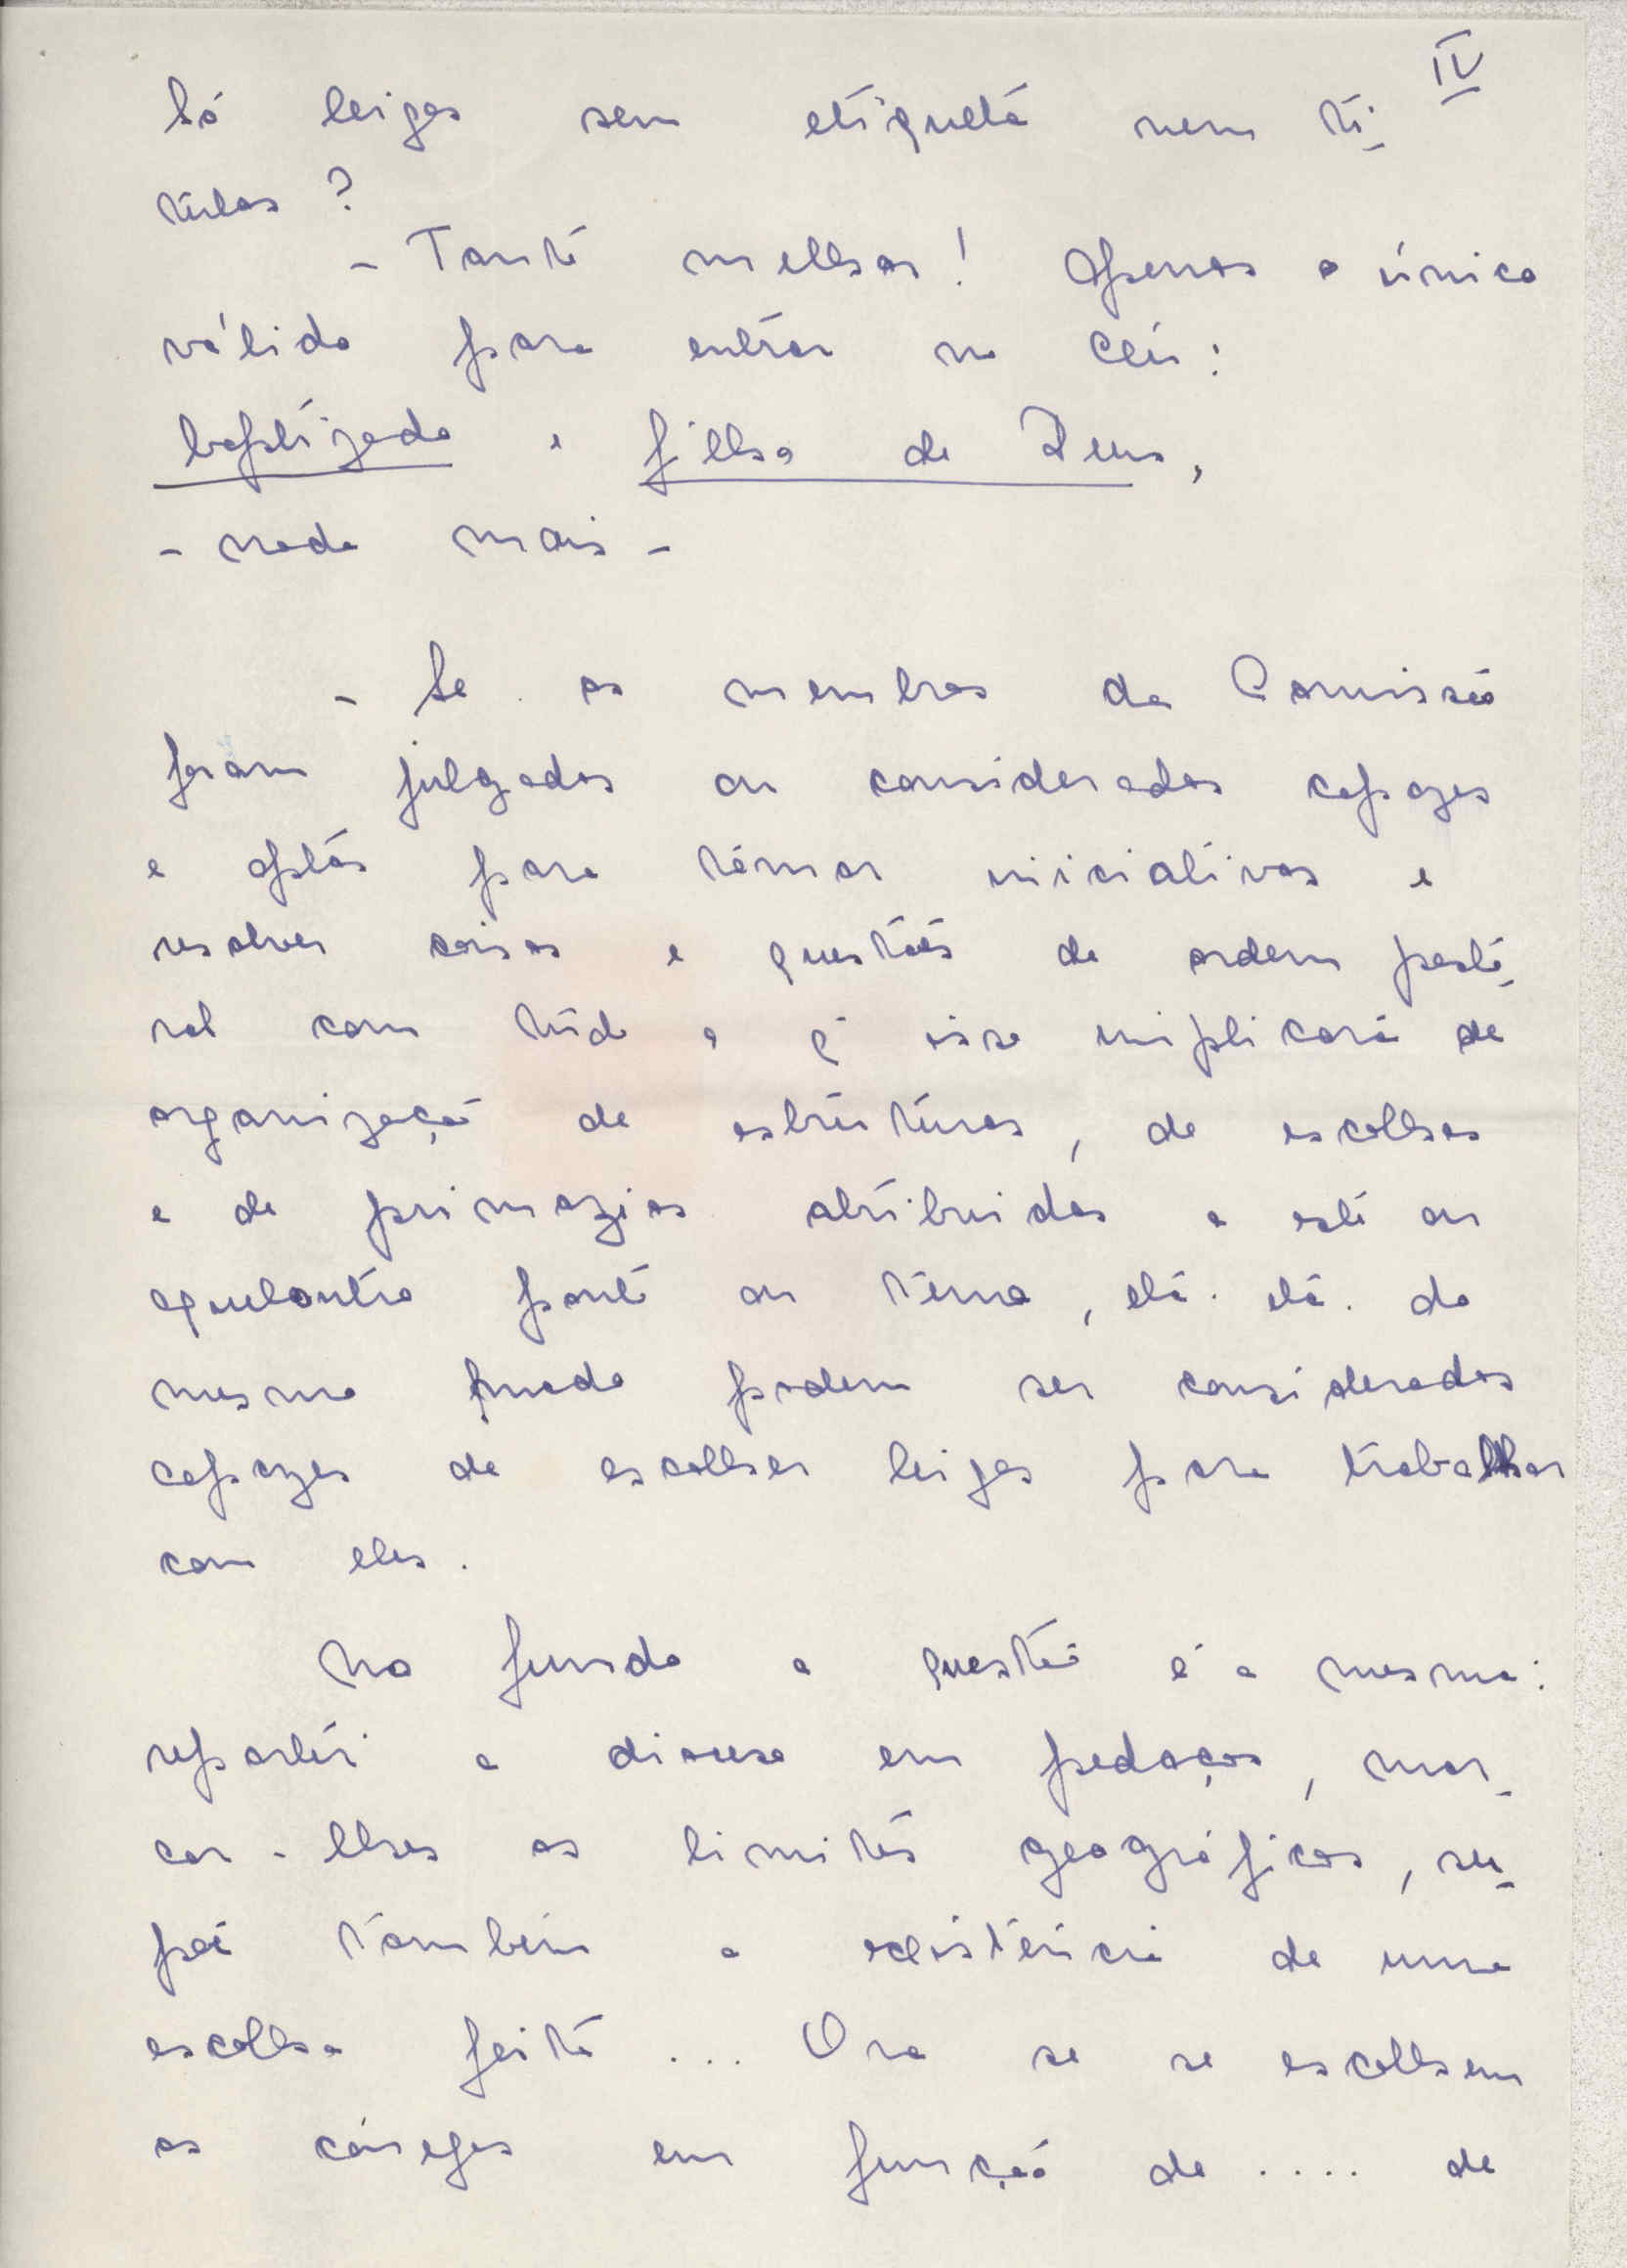 IV
Só leigos sem etiqueta nem tí-
tulos?
- Tanto melhor! Apenas o único
válido para entrar no Céu:
baptizado e filho de Deus,
- nada mais -
- Se os membros da Comissão
foram julgados ou considerados capazes
e aptos para tomar iniciativas e
resolver coisas e questões de ordem pasto-
ral com tudo o q isso implicará de
organização de estruturas, de escolhas
e de primazias atribuidas a este ou
aqueloutro ponto ou tema, etc. etc. do
mesmo modo podem ser considerados
capazes de escolher leigos para trabalhar
com eles.
No fundo a questão é a mesma:
repartir a diocese em pedaços, mar-
car-lhes os limites geográficos, su-
põe também a existência de uma
escolha feita ... Ora se se escolhem
os cónegos em função de .... de